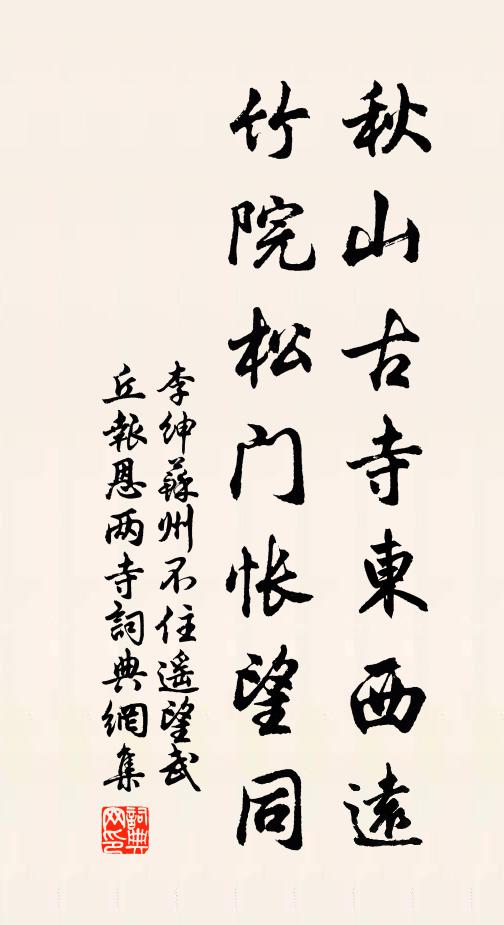 秋山古寺東西遠
竹院松门悵望同
李紳蘇州不住遥望武
丘報恩两寺詞典網集
詞典网印